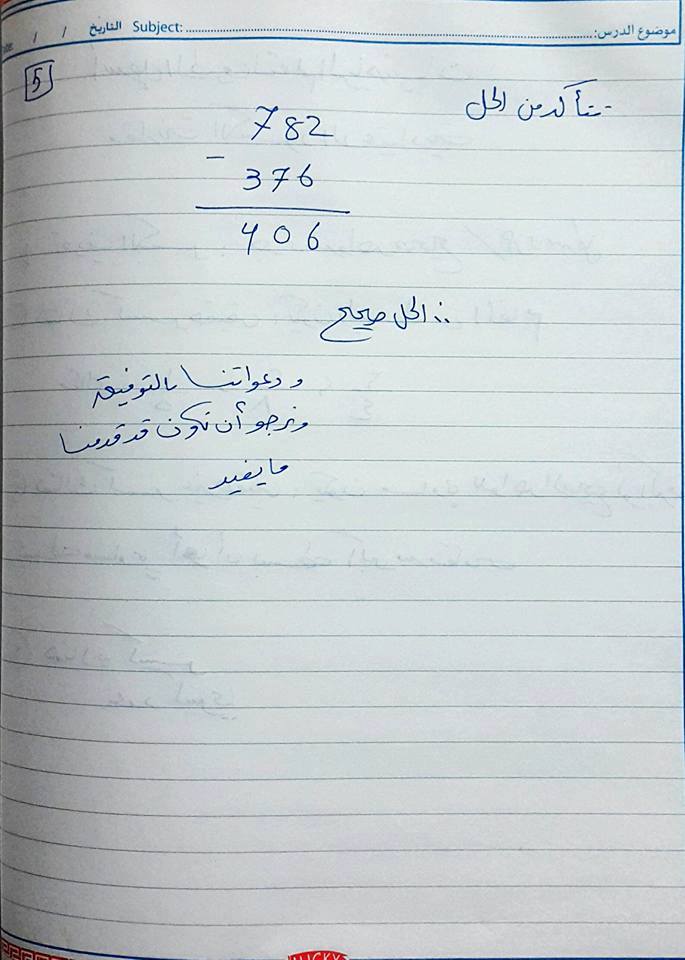 موضوع الدرس: Subject: التاريخ / /
5
نتأكد من الحل
782
-
376
406
∴ الحل صحيح
ودعواتنا بالتوفيق
ونرجو أن نكون قد قدمنا
ما يفيد